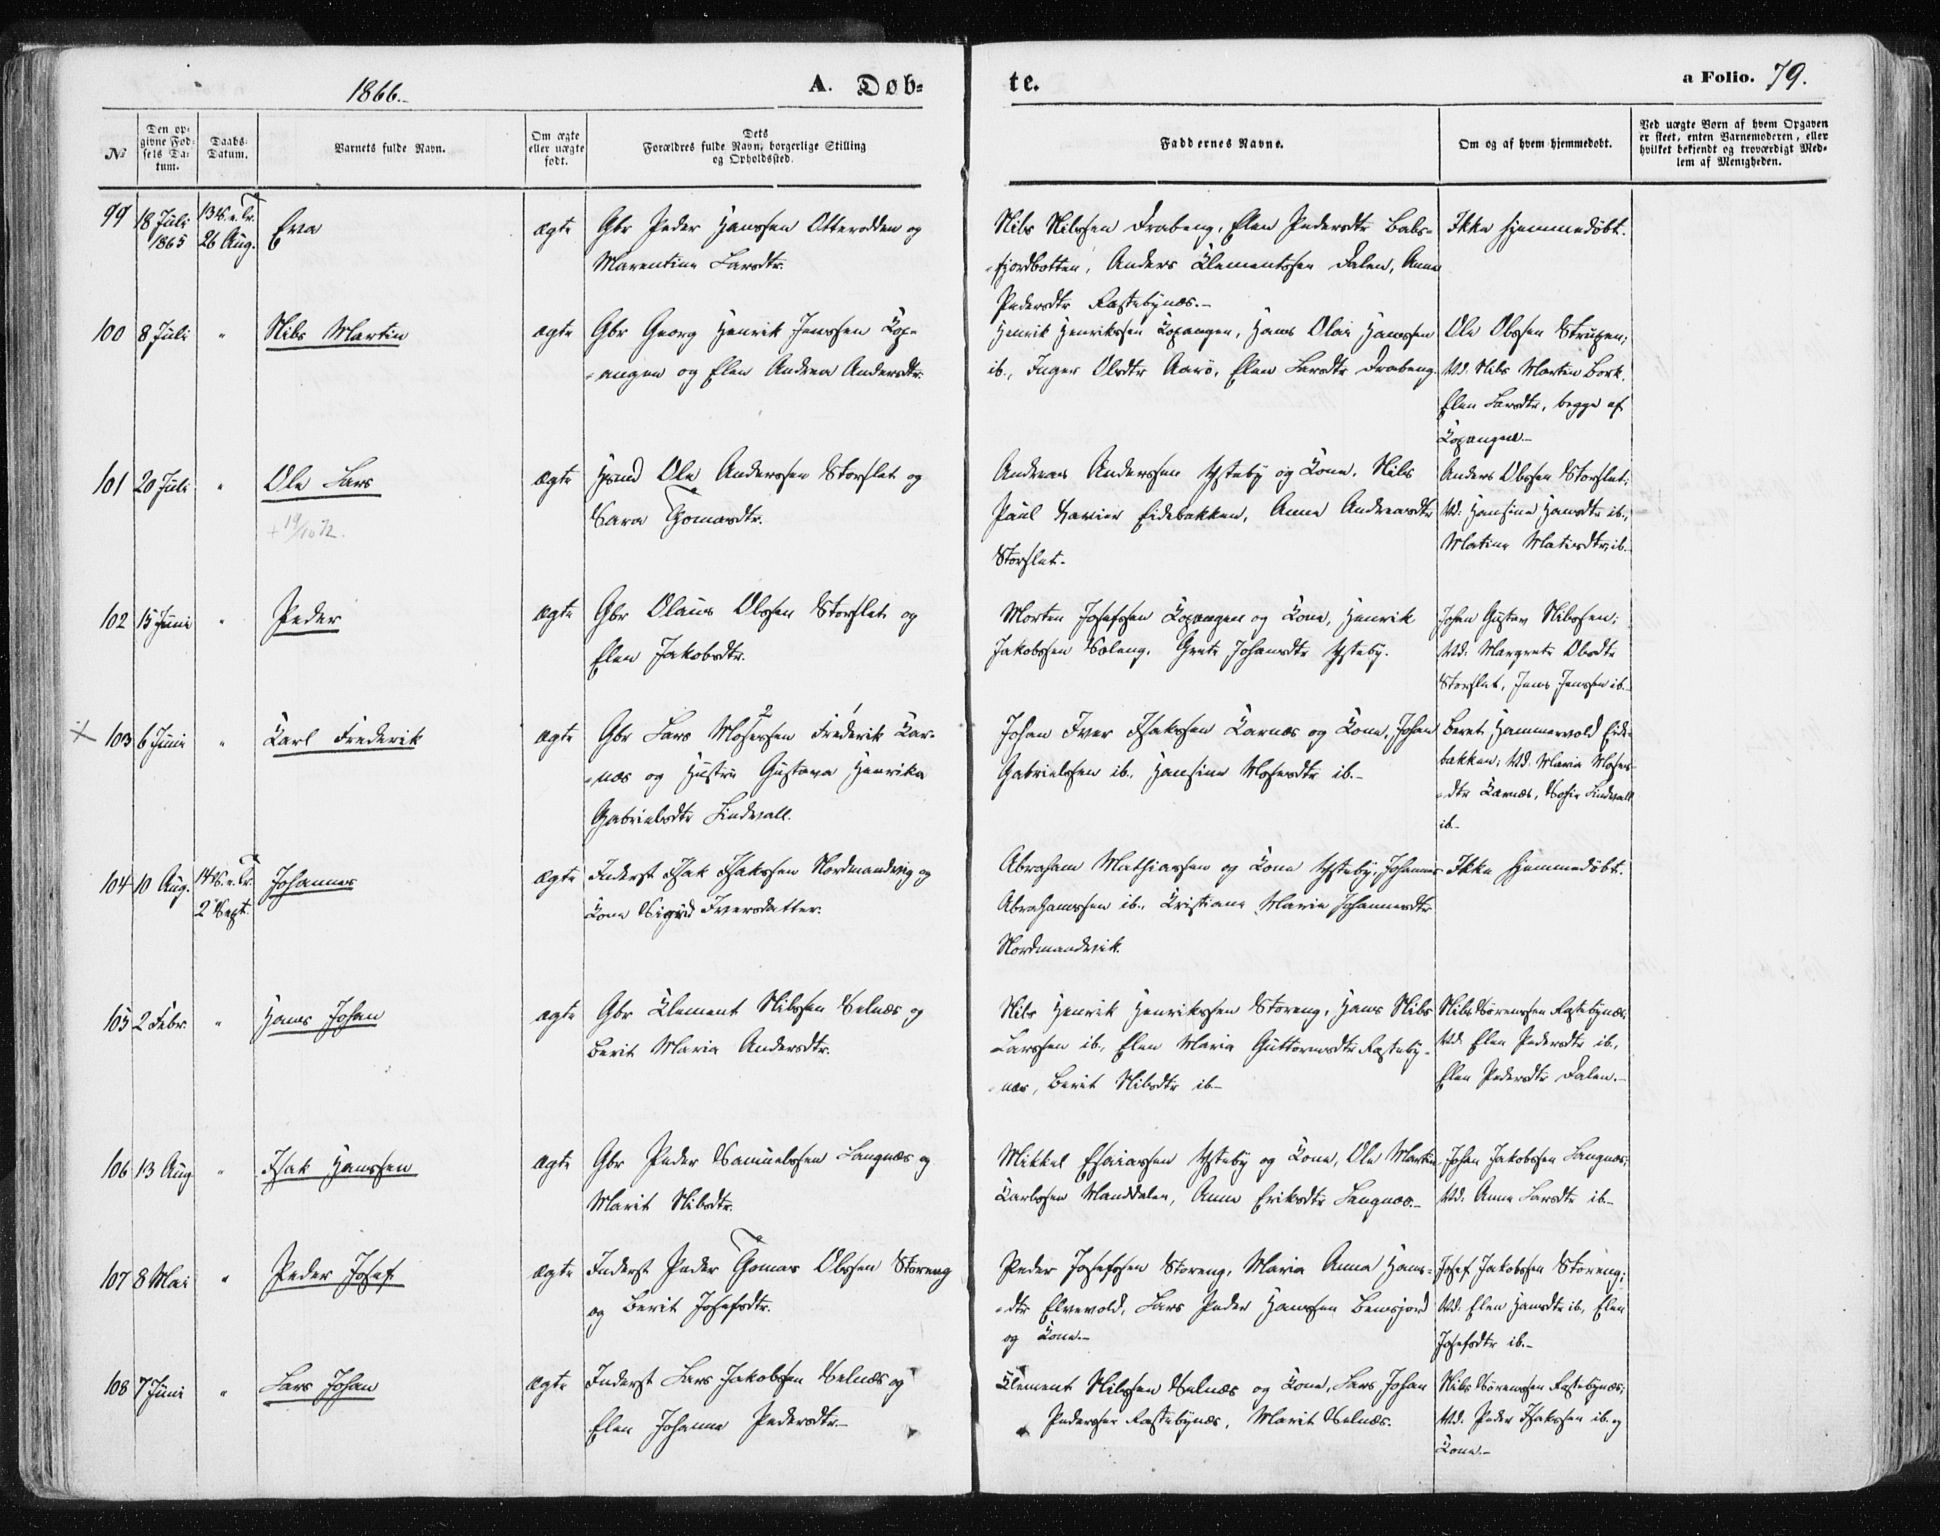 1866.
A. Døb-
te.
a Folio. 79.
No
Den op-
givne Fød-
sels Da-
tum.
Daabs-
Datum.
Barnets fulde Navn.
Om ægte
eller uægte
født.
Dets
Forældres fulde Navn, borgerlige Stilling
og Opholdssted.
Faddernes Navne.
Om og af hvem hjemmedøbt.
Ved uægte Børn af hvem Opgaven
er skeet, enten Barnemoderen, eller
hvilket bekjendt og troværdigt Med-
lem af Menigheden.
99 18 Juli 1865 13 S. e. Tr. 26 Aug. Eva ægte
Gbr Peder Hanssen Otterodden og
Marentine Larsdtr.
Nils Nilssen Drabeng, Elen Pedersdtr Bals-
fjordbotten, Anders Clementssen Dalen, Anne
Pedersdtr Rastebynæs.-
Ikke hjemmedøbt.
100 8 Juli " Nils Martin ægte
Gbr Georg Henrik Jenssen Kop-
angen og Elen Andrea Andersdtr.
Henrik Henrikssen Kopangen, Hans Olai Hanssen
ib., Inger Olsdtr Aarø, Elen Larsdtr Drabeng.
Ole Olssen Strupen;
Vd. Nils Martin Bork,
Elen Larsdtr, begge af
Kopangen.-
101 20 Juli " Ole Lars ægte
+ 19/10 72.
Hsmd Ole Anderssen Storslet og
Sara Thomasdtr.
Andreas Anderssen Ysteby og Kone, Nils
Paul Xavier Eidebakken, Anne Andreasdtr
Storslet.
Anders Olssen Storslet;
Vd: Hansine Hansdtr ib.,
Matine Matisdtr ib.
102 15 Juni " Peder ægte
Gbr Olaus Olssen Storslet og
Elen Jakobsdtr.
Morten Josefssen Kopangen og Kone, Henrik
Jakobssen Soleng, Grete Johansdtr Ysteby.
Johan Gustav Nilssen;
Vd: Margrete Olsdtr
Storslet, Jens Jenssen ib.-
× 103 6 Juni " Karl Frederik ægte
2 1
Gbr Lars Mosessen Frederik Kar-
næs og Hustru Gustava Henrika
Gabrielsdtr Lindvall.
Johan Iver Isakssen Karnæs og Kone, Johan
Gabrielssen ib., Hansine Mosesdtr ib.-
Beret Hammervold Eide-
bakken; Vd. Maria Moses-
dtr Karnæs, Sofie Lindvall
ib-
104 10 Aug. 14 S. e. Tr. 2 Sept. Johannes ægte
Inderst Isak Isakssen Nordmandvig og
Kone Sigrid Iversdatter.
Abraham Mathiassen og Kone Ysteby, Johannes
Abrahamssen ib., Kristiane Marie Johannesdtr
Nordmandvik.
Ikke hjemmedøbt.
105 2 Febr. " Hans Johan ægte
Gbr Klement Nilssen Selnæs og
Berit Maria Andersdtr.
Nils Henrik Henrikssen Storeng, Hans Nils
Larssen ib., Elen Maria Guttormsdtr Rasteby-
næs, Berit Nilsdtr ib-
Nils Sørenssen Rastebynæs;
Vd. Elen Pedersdtr ib.,
Elen Pedersdtr Dalen.-
106 13 Aug " Isak Hanssen ægte
Gbr Peder Samuelssen Langnæs og
Marit Nilsdtr.
Mikkel Esaiassen Ysteby og Kone, Ole Martin
Karlssen Manddalen, Anne Eriksdtr Langnæs.-
Johan Jakobssen Langnæs;
Vd: Anne Larsdtr ib-
107 8 Mai " Peder Josef ægte
Inderst Peder Thomas Olssen Storeng
og Berit Josefsdtr.
Peder Josefssen Storeng, Maria Anna Hans-
dtr Elvevold, Lars Peder Hanssen Bensjord
og Kone.-
Josef Jakobssen Storeng;
Vd: Elen Hansdtr ib, Elen
Josefsdtr ib.-
108 7 Juni " Lars Johan ægte
Inderst Lars Jakobssen Selnæs og
Elen Johanna Pedersdtr.-
Klement Nilssen Selnæs og Kone, Lars Johan
Pederssen Rastebynæs, Marit Selnæs.
Nils Sørenssen Rastebynæs;
Vd. Peder Isakssen ib. og
Kone.-